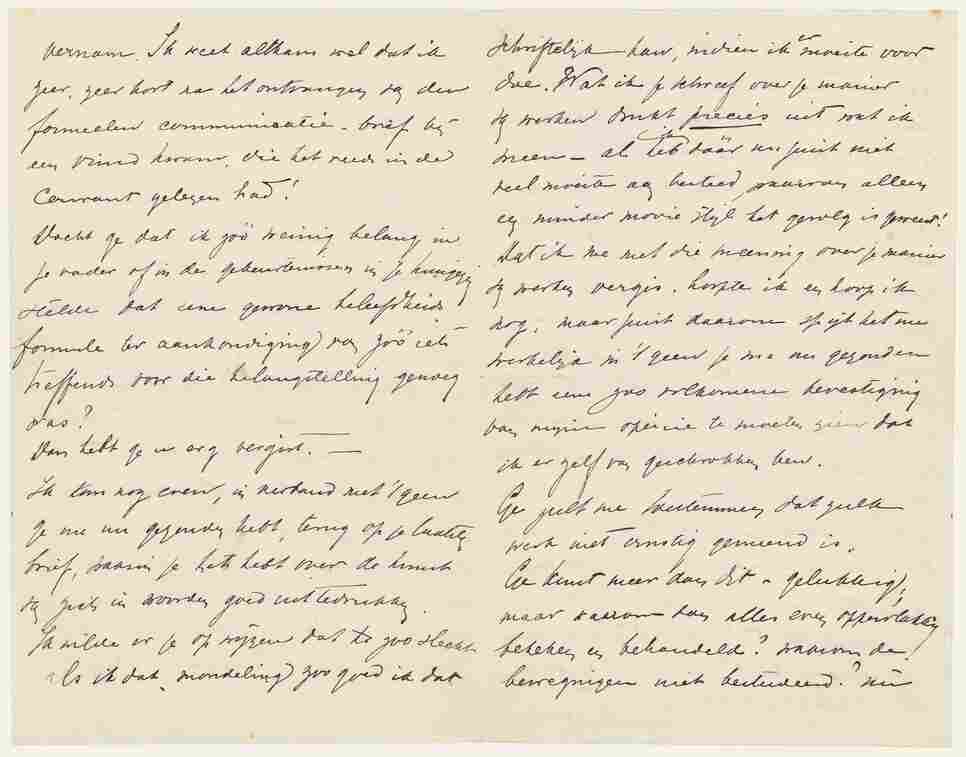 vernam. Ik weet althans wel dat ik
zeer, zeer kort na het ontvangen van den
formeelen communicatie-brief bij
een vriend kwam, die het reeds in de
Courant gelezen had!
Dacht ge dat ik zóó weinig belang in
je vader of in de gebeurtenissen in je huisgezin
stelde dat eene gewone beleefdheids
formule ter aankondiging van zóó iets
treffends voor die belangstelling genoeg
was?
Dan hebt ge u erg vergist. —
Ik kom nog even, in verband met 't geen
ge me nu gezonden hebt, terug op je laatsten
brief, waarin je het hebt over de kunst
van zich in woorden goed uittedrukken.
Ik wilde er je op wijzen dat zoo slecht
als ik dat mondeling, zoo goed ik dat
schriftelijk kan, indien ik er moeite voor
doe. Wat ik je schreef over je manier
van werken drukt precies uit wat ik
meen — al heb ik dáár nu juist niet
veel moeite aan besteed, waarvan alleen
een minder mooie stijl het gevolg is geweest!
Dat ik me met die meening over je manier
van werken vergis, hoopte ik en hoop ik
nog; maar juist daarom spijt het me
werkelijk in 't geen je me nu gezonden
hebt eene zoo volkomene bevestiging
van mijne opinie te moeten zien dat
ik er zelf van geschrokken ben.
Ge zult me toestemmen dat zulk
werk niet ernstig gemeend is.
Ge kunt meer dan dit – gelukkig!,
maar waarom dan alles even oppervlakkig
bekeken en behandeld? waarom de
bewegingen niet bestudeerd? nu